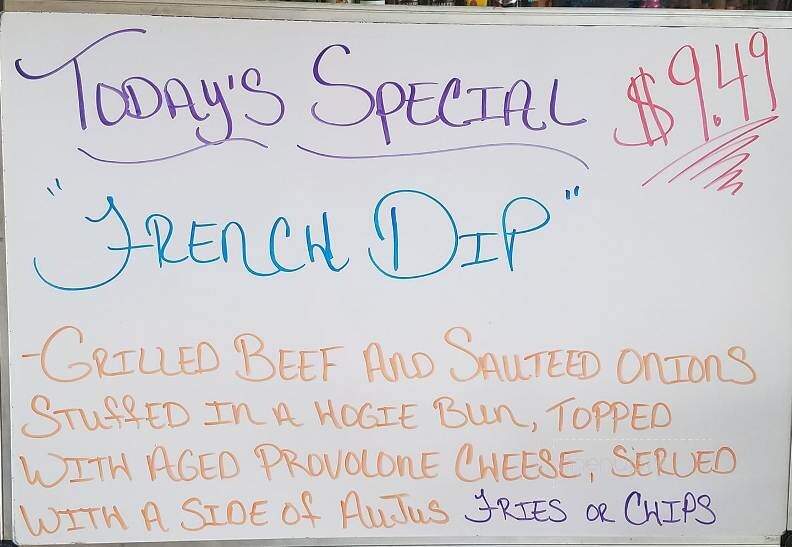 TODAY'S SPECIAL $9.49
"FRENCH DIP"
-GRILLED BEEF AND SAUTEED ONIONS
STUFFED IN A HOGIE BUN, TOPPED
WITH AGED PROVOLONE CHEESE, SERVED
WITH A SIDE OF AUJUS FRIES OR CHIPS